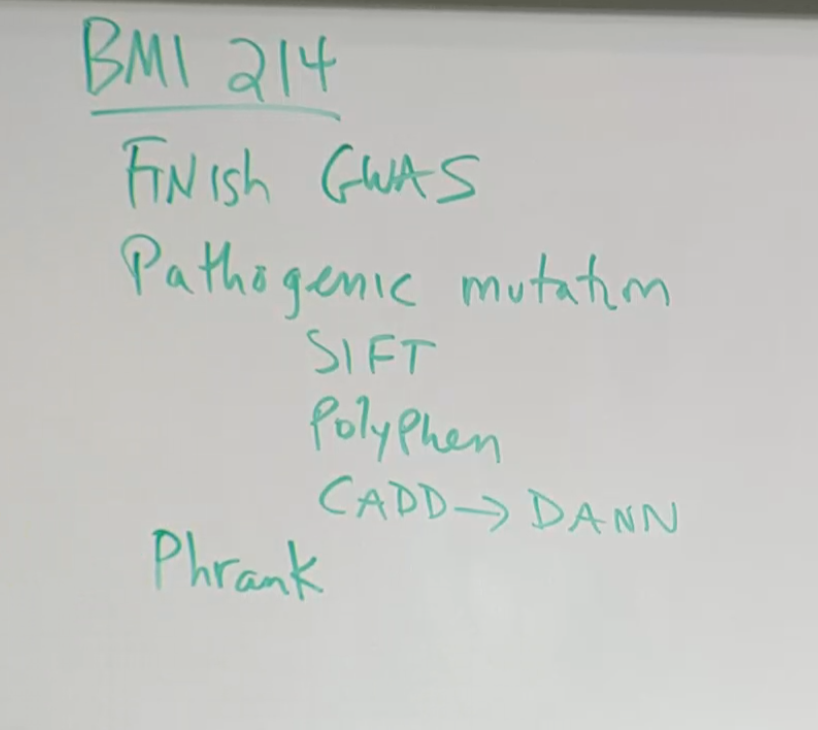 BMI 214
FINish GWAS
Pathogenic mutation
SIFT
PolyPhen
CADD → DANN
Phrank